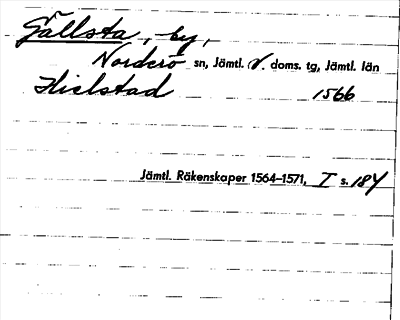 Gällsta, by,
Norderö sn, Jämtl. V. doms. tg, Jämtl. län
Hielstad 1566
Jämtl. Räkenskaper 1564–1571, I s. 184